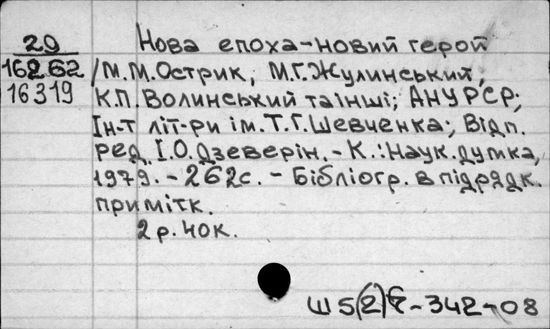 29
16262
16319
Нова епоха-новий герой
/М.М.Острик, М.Г.Жулинський,
К.П.Волинський та інші; АНУРСР;
Ін-т літ-ри ім.Т.Г.Шевченка; Відп.
ред. І.О.Дзеверін.-К.:Наук.думка,
1979.-262с.-Бібліогр. в підрядк.
примітк.
2р.40к.
Ш5(2)
-342-08